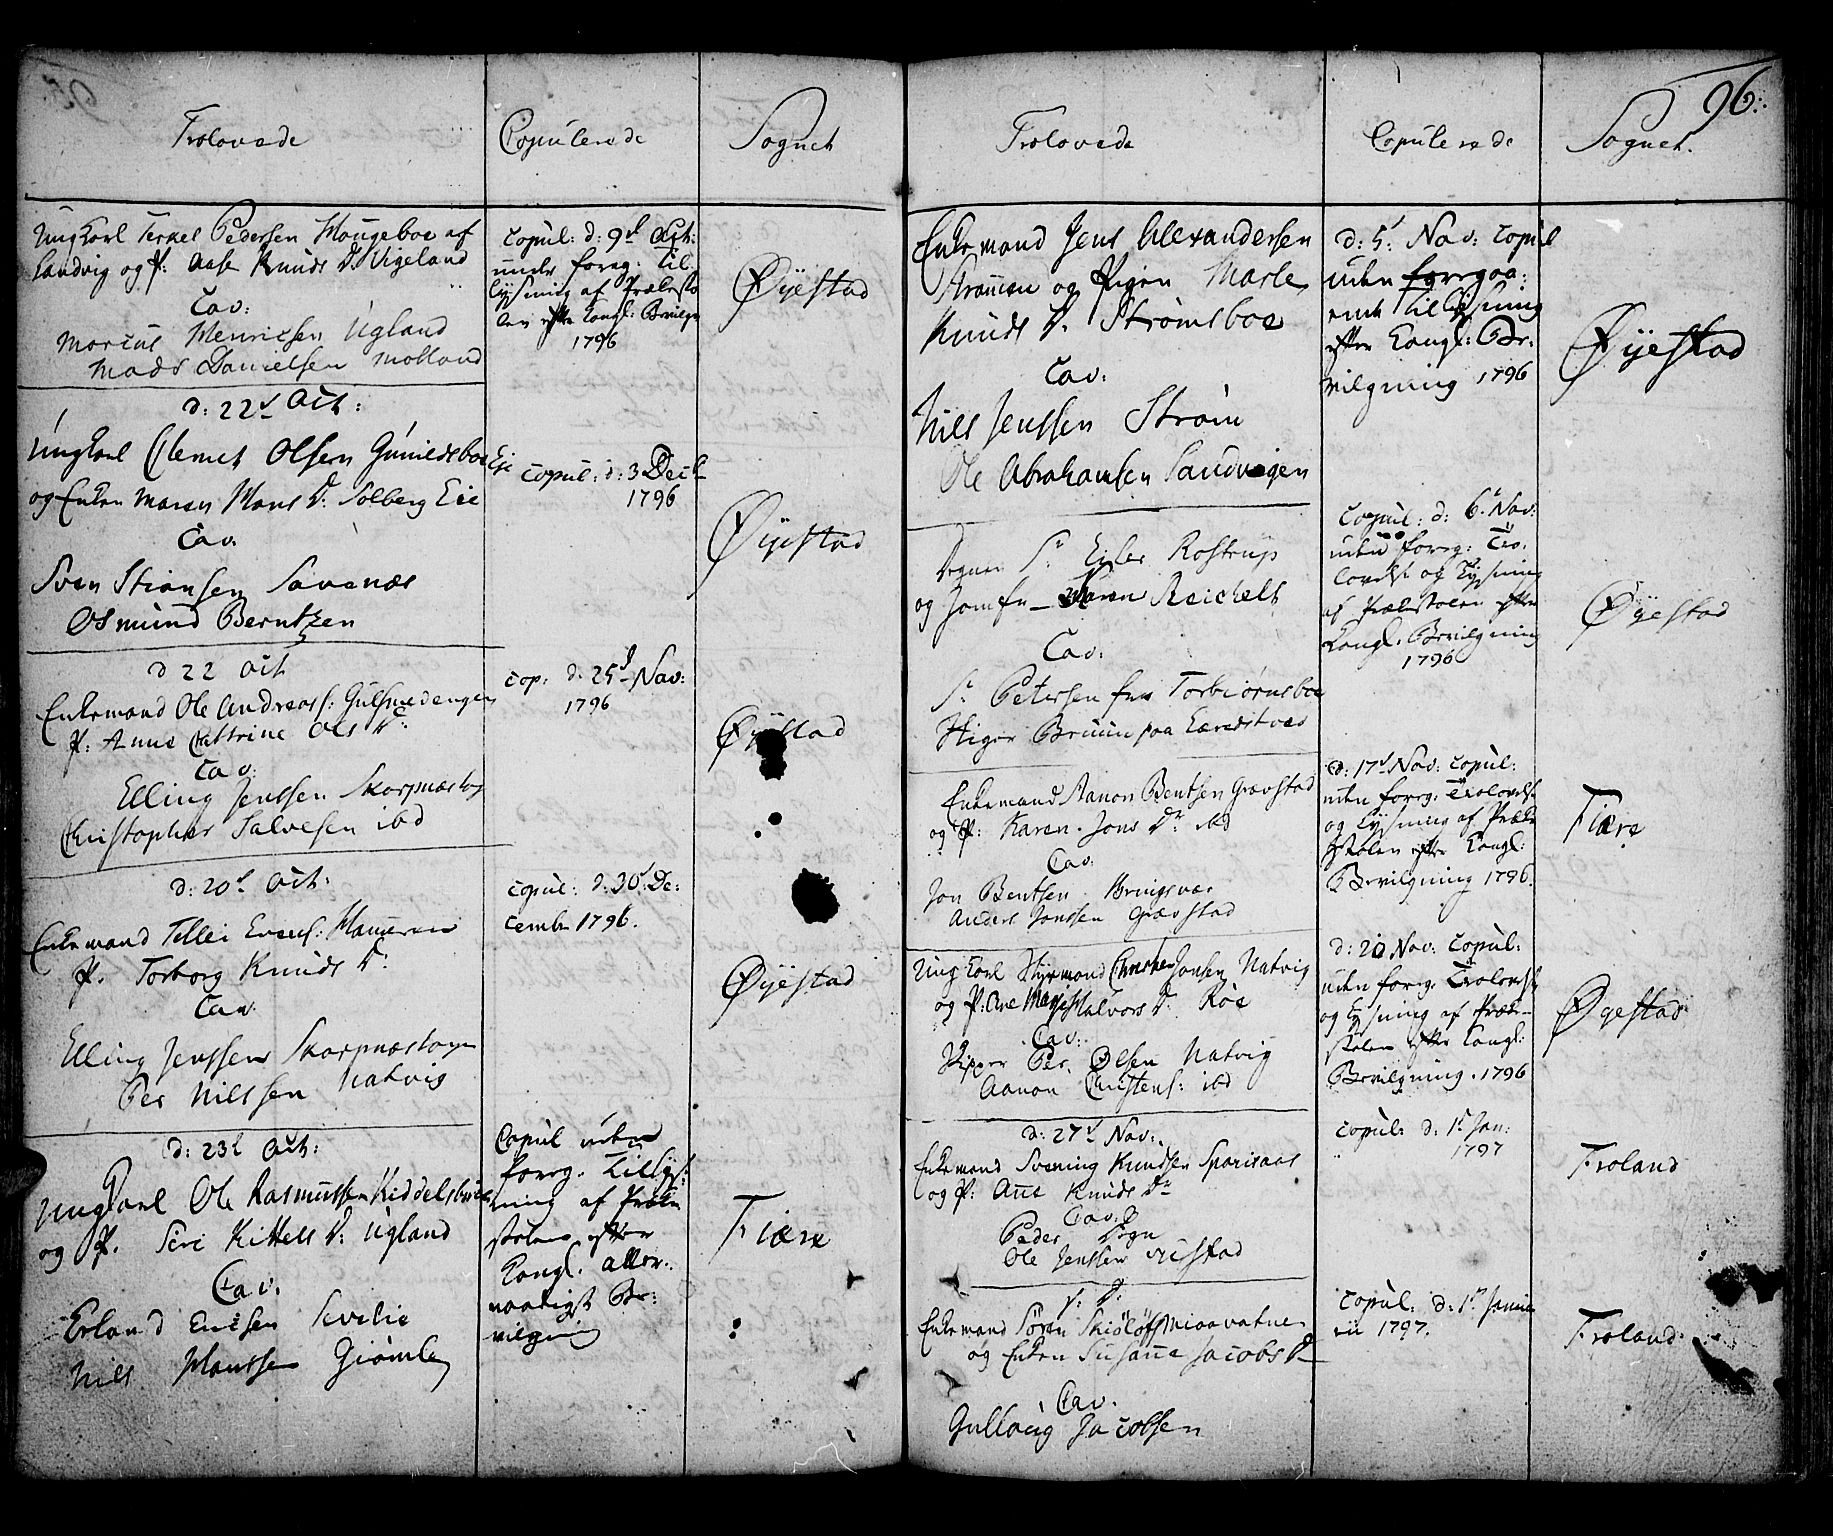 Trolovede
Copulerede
Sognet
Ungkarl Terkel Pedersen Hougeboe af
Landvig og P: Aase Knuds D: Vigeland
Cav:
Morcus Henricsen Ugland
Mads Danielsen Molland
Copul: d: 9d Oct:
uden foreg: Til
lysning af Prædesto
len efter Kongl: Bevilgn
1796
Øyestad
d: 22d Oct:
Ungkarl Clemet Olsen Gunildsboe Eje
og Enken Maren Hans D: Solberg Eie
Cav.
Sven Stiansen Savenæs
Osmund Berntzen
Copul: d: 3 Decb
1796
Øyestad
d 22 Oct
Enkemand Ole Andreass: Gulsmedengen
P: Anne Cattrine Ols D:
Cav:
Elling Jenssen Skorpnæstog
Christopher Salvesen ibd
Cop: d: 25d Nov:
1796
Øyestad
d: 20d Oct:
Enkemand Tellei Evens: Hameren
P. Torborg Knuds D:
Cav:
Elling Jenssen Skarpnæstogen
Per Nilssen Natvig
Copul: d: 30d De:
cembr 1796.
Øyestad
d: 23d Oct:
Ungkarl Ole Rasmussen Kiddelsbue
og P. Siri Kittels D: Ugland
Cav:
Erland Ericsen Sevelie
Nils Hanssen Giømle
Copul uden
foreg. Tillys
ning af Præke
stolen efter
Kongl. aller:
naadigst Be:
vilgning
Fiære
96.
Trolovede
Copulerede
Sognet.
Enkemand Jens Alexandersen
Strømen og Pigen Marte
Knuds D. Strømsboe
Cav:
Nils Jenssen Strøm
Ole Abrahamsen Sandvigen
d: 5t Nov: Copul
uden foregaa:
ende Tillysning
efter Kongl: Be:
vilgning 1796
Øyestad
Degnen Sr Eiler Rostrup
og Jomfr Maren Reichelt
Cav:
Sr Petersen fra Torbiørnsboe
Stiger Bruun paa Lærestved
Copul: d: 6t Nov:
uden foreg: Tro:
lovelse og Lysning
af Prækestolen efter
Kongl. Bevilgning
1796
Øyestad
Enkemand Aanon Bentsen Grævstad
og P: Karen Jons Dr ibd
Cav:
Jon Bentsen Bringsvær
Anders Jonssen Grævstad
d: 17d Nov: Copul:
uden foreg: Trolovelse
og Lysning af Præke
stolen efter Kongl:
Bevilgning 1796.
Fiære
Ungkarl Styrmand Christen Jonsen Natvig
og P: Ane Marie Halvors D: Røe
Cav:
Skipper Per Olsen Natvig
Aanon Christens: ibd
d: 20 Nov: Copul:
uden foreg: Trolovelse
og Lysning af Præke
stolen efter Kongl:
Bevilgning. 1796
Øyestad
d: 27d Nov:
Enkemand Svening Knudsen Sparisaas
og P: Ane Knuds Dr
Cav:
Peder Dogn
Ole Jenssen
Copul: d: 1t Jan:
1797
Froland
Enkemand Søren Skiøløfs Miaavatne
og Enken Susanne Jacobs D
Cav.
Gulloug Jacobsen
Copul: d: 1t Janua
rii 1797.
Froland